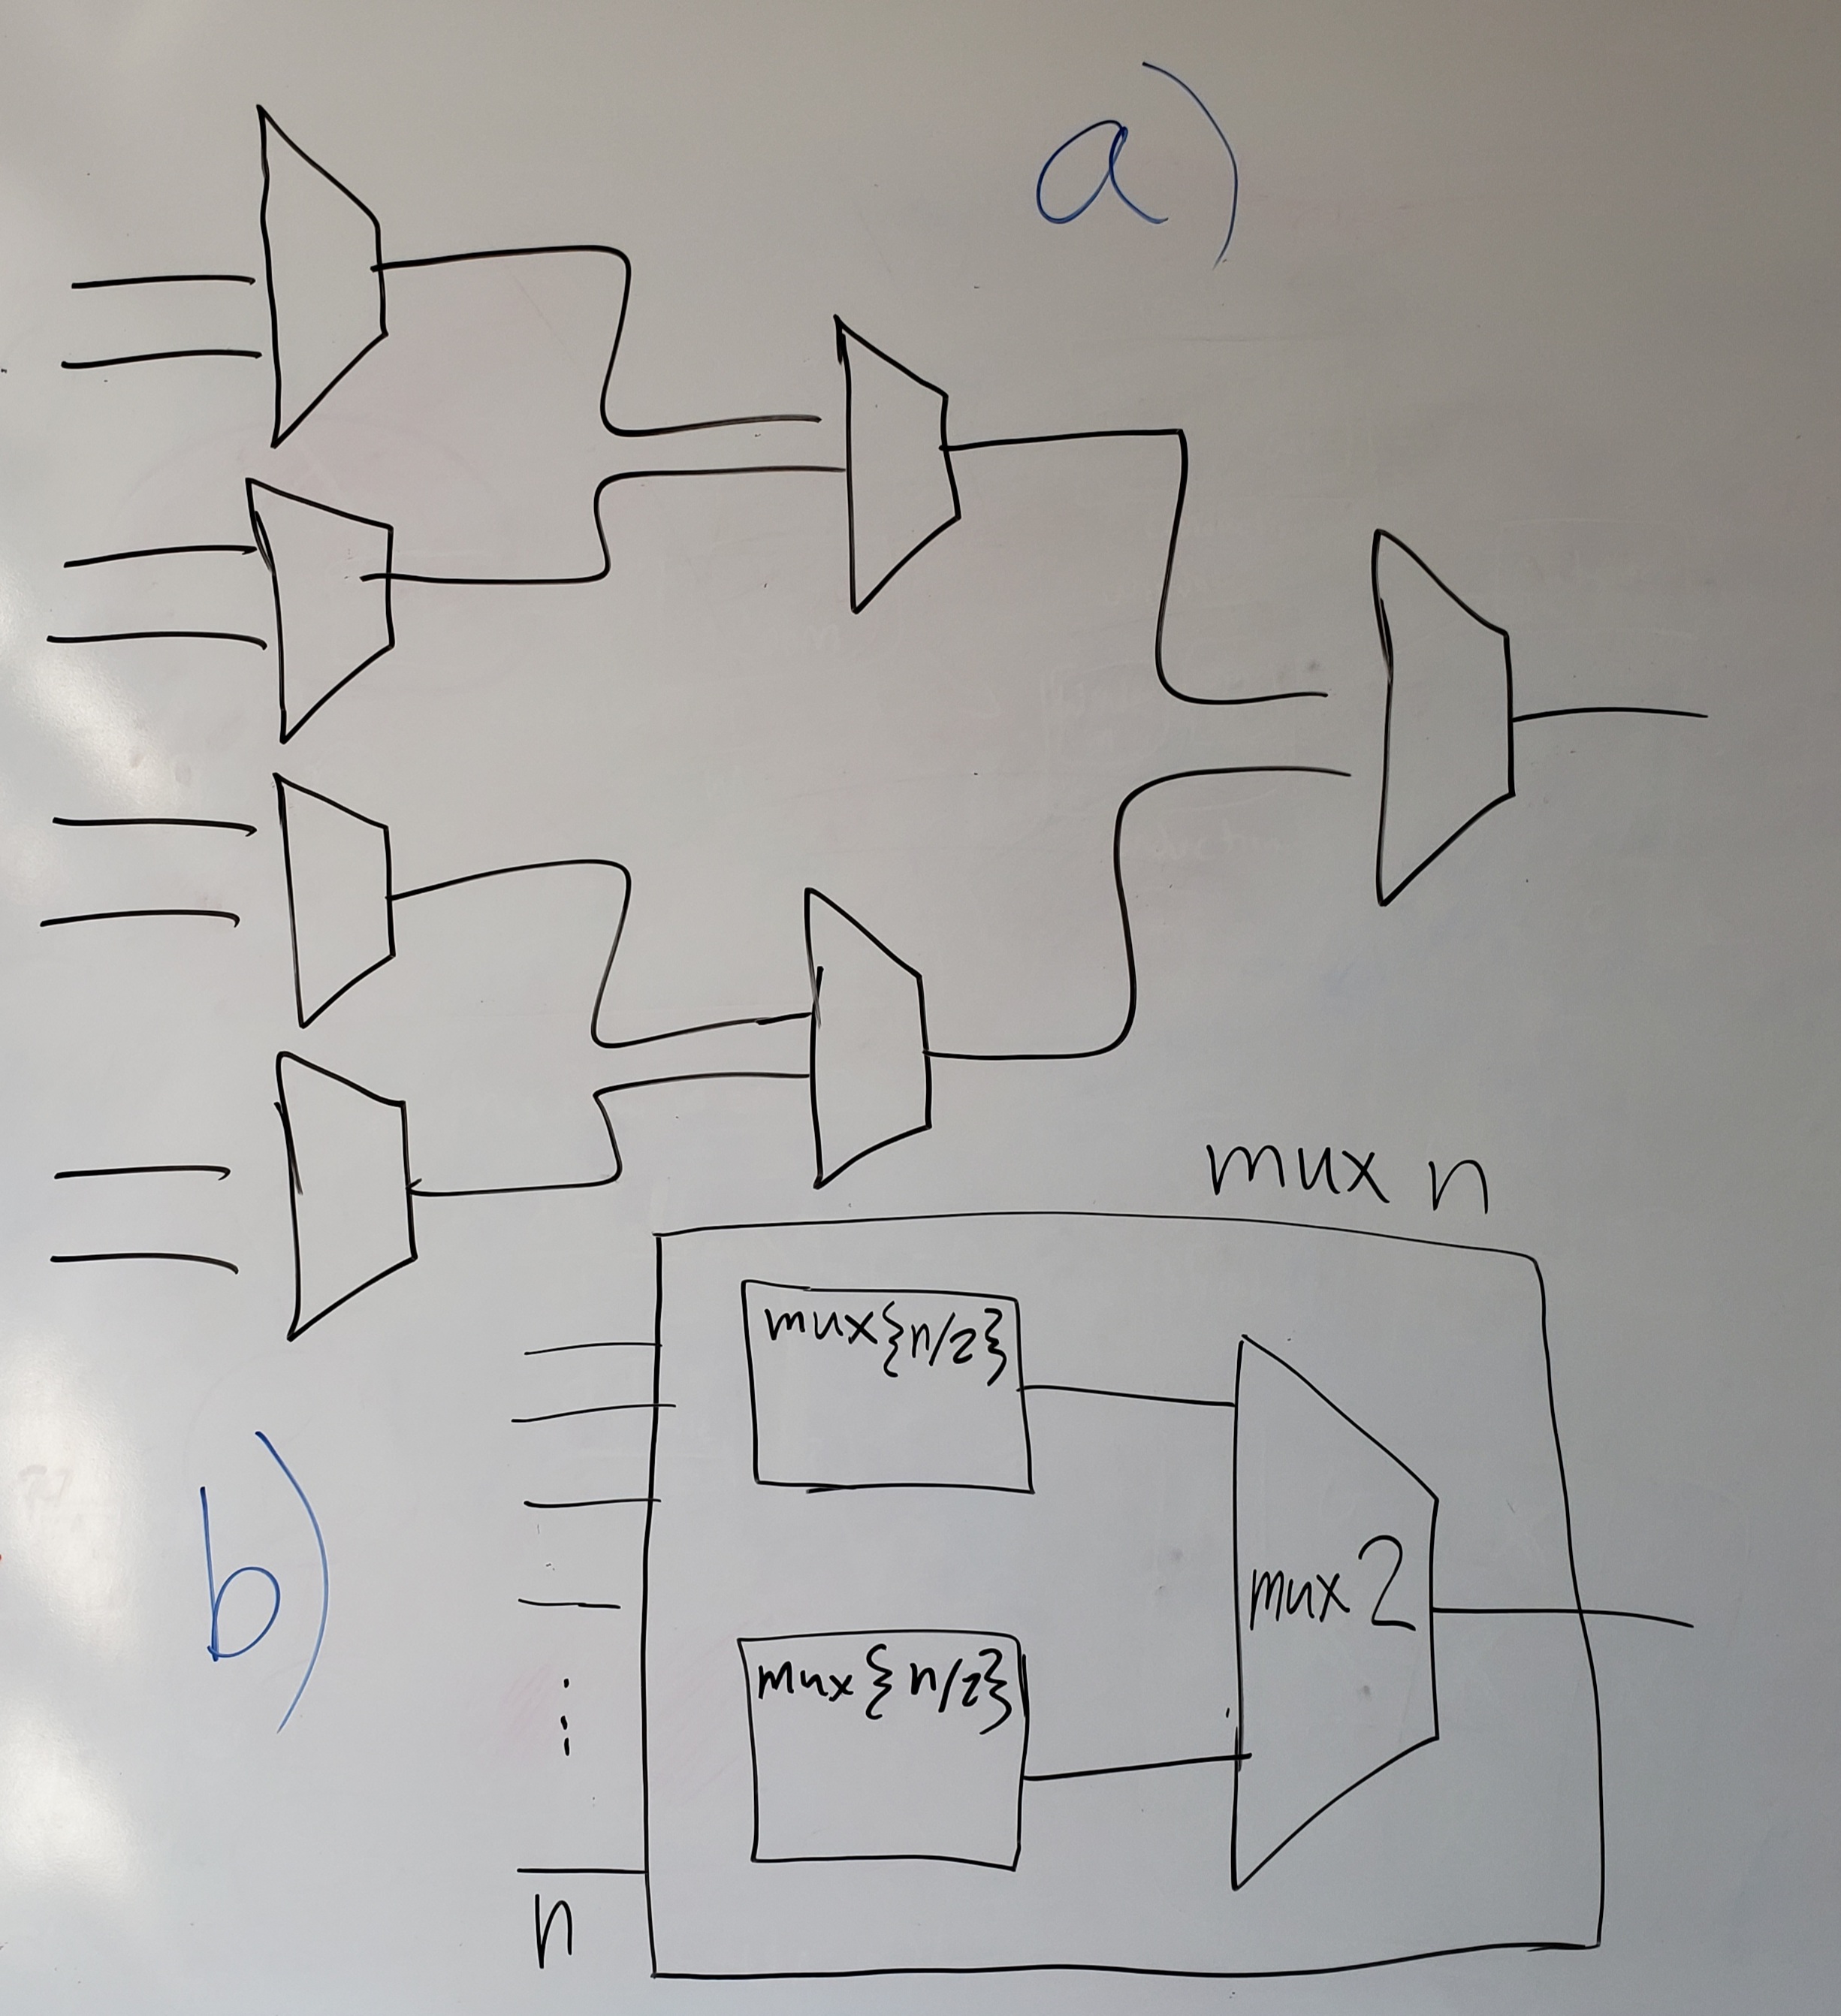 a)
mux n
mux{n/2}
mux 2
mux{n/2}
b)
n